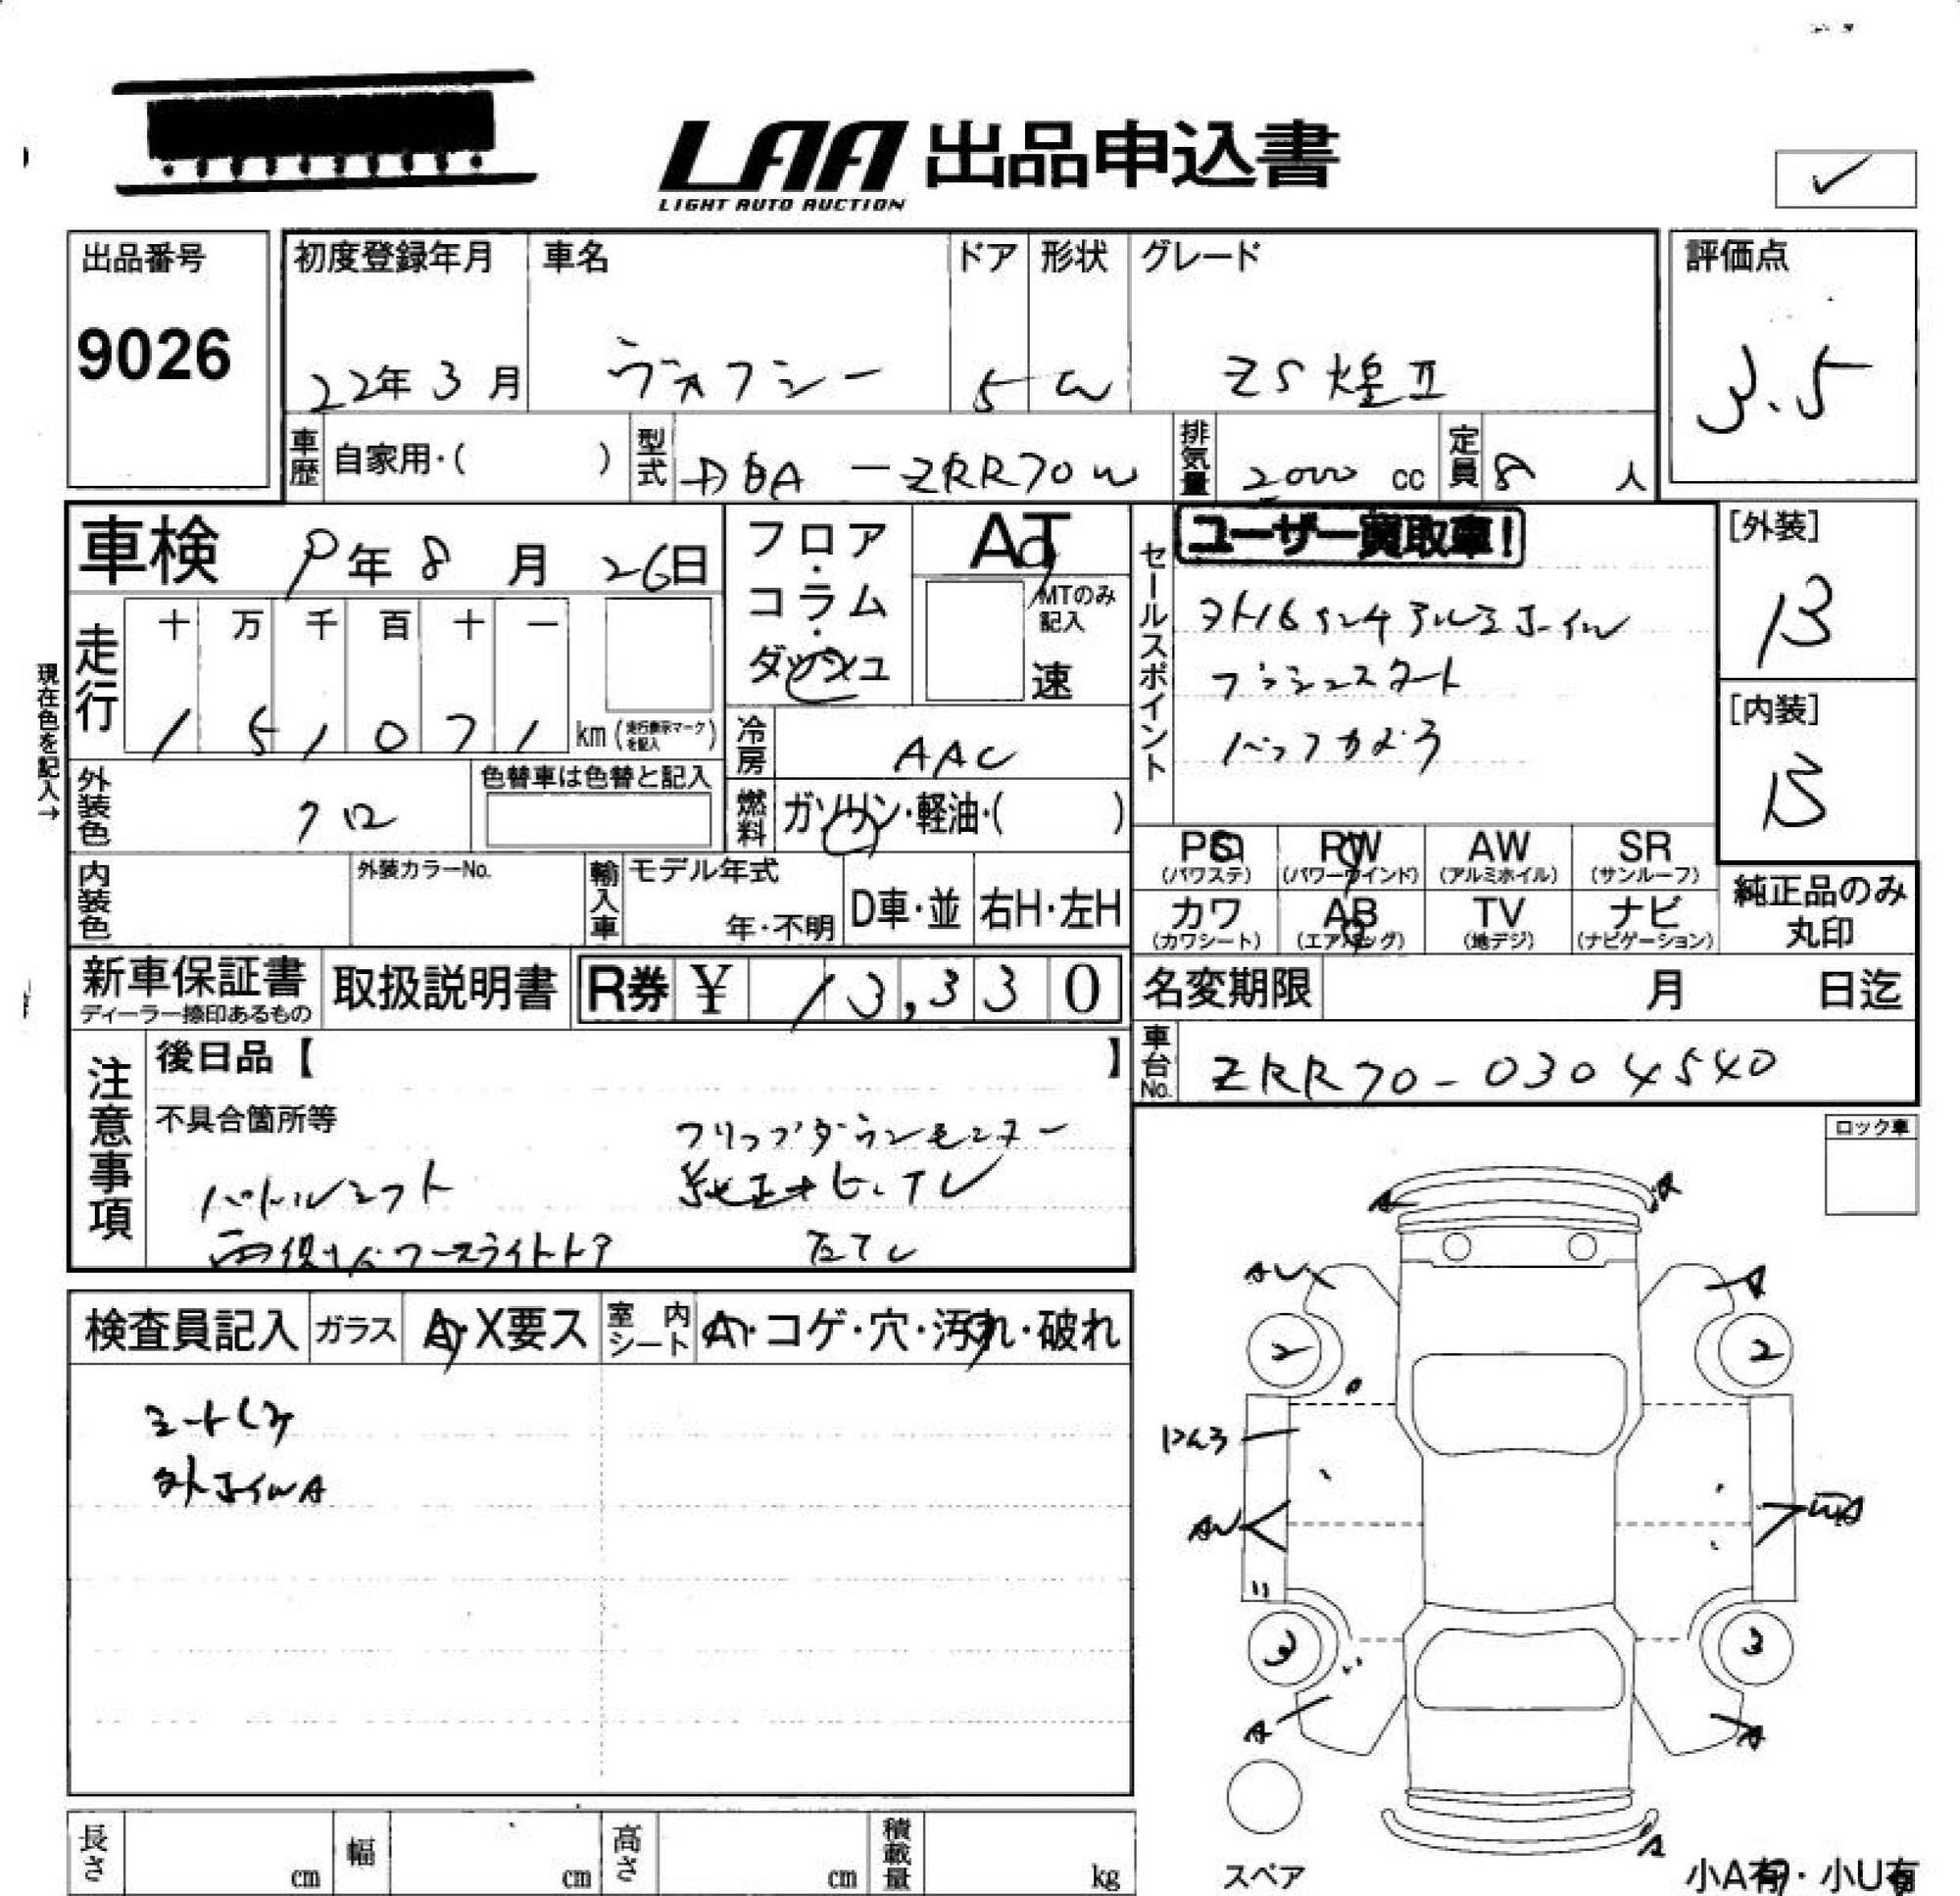 LAA 出品申込書
LIGHT AUTO AUCTION
出品番号
9026
初度登録年月
22年3月
車名
ヴォクシー
ドア
5
形状
W
グレード
ZS 煌Ⅱ
評価点
3.5
車歴
自家用・( )
型式
DBA-ZRR70W
排気量
2000 cc
定員
8 人
車検
9年8月26日
フロア・コラム・ダッシュ
AT
MTのみ記入
速
セールスポイント
ユーザー買取車!
外16インチアルミホイル
プッシュスタート
バックカメラ
[外装]
B
[内装]
B
現在色を記入→
走行
十 万 千 百 十 一
1 5 1 0 7 1 km
(走行表示マークを記入)
冷房
AAC
外装色
クロ
色替車は色替と記入
燃料
ガソリン・軽油・( )
PS
(パワステ)
PW
(パワーウインド)
AW
(アルミホイル)
SR
(サンルーフ)
カワ
(カワシート)
AB
(エアバッグ)
TV
(地デジ)
ナビ
(ナビゲーション)
純正品のみ
丸印
内装色
外装カラーNo.
輸入車
モデル年式
年・不明
D車・並
右H・左H
新車保証書
ディーラー捺印あるもの
取扱説明書
R券 ¥ 13,330
名変期限
月 日迄
車台No.
ZRR70-0304540
注意事項
後日品【 】
不具合箇所等
フリップダウンモニター
パドルシフト
純正ナビ、TV
両側パワースライドドア
ロック車
検査員記入
ガラス
A・X要ス
室内シート
A・コゲ・穴・汚れ・破れ
シートしみ
外ホイルA
A
A
AU
A
2
2
AU
UA
3
3
A
A
A
スペア
小A有・小U有
長さ
cm
幅
cm
高さ
cm
積載量
kg